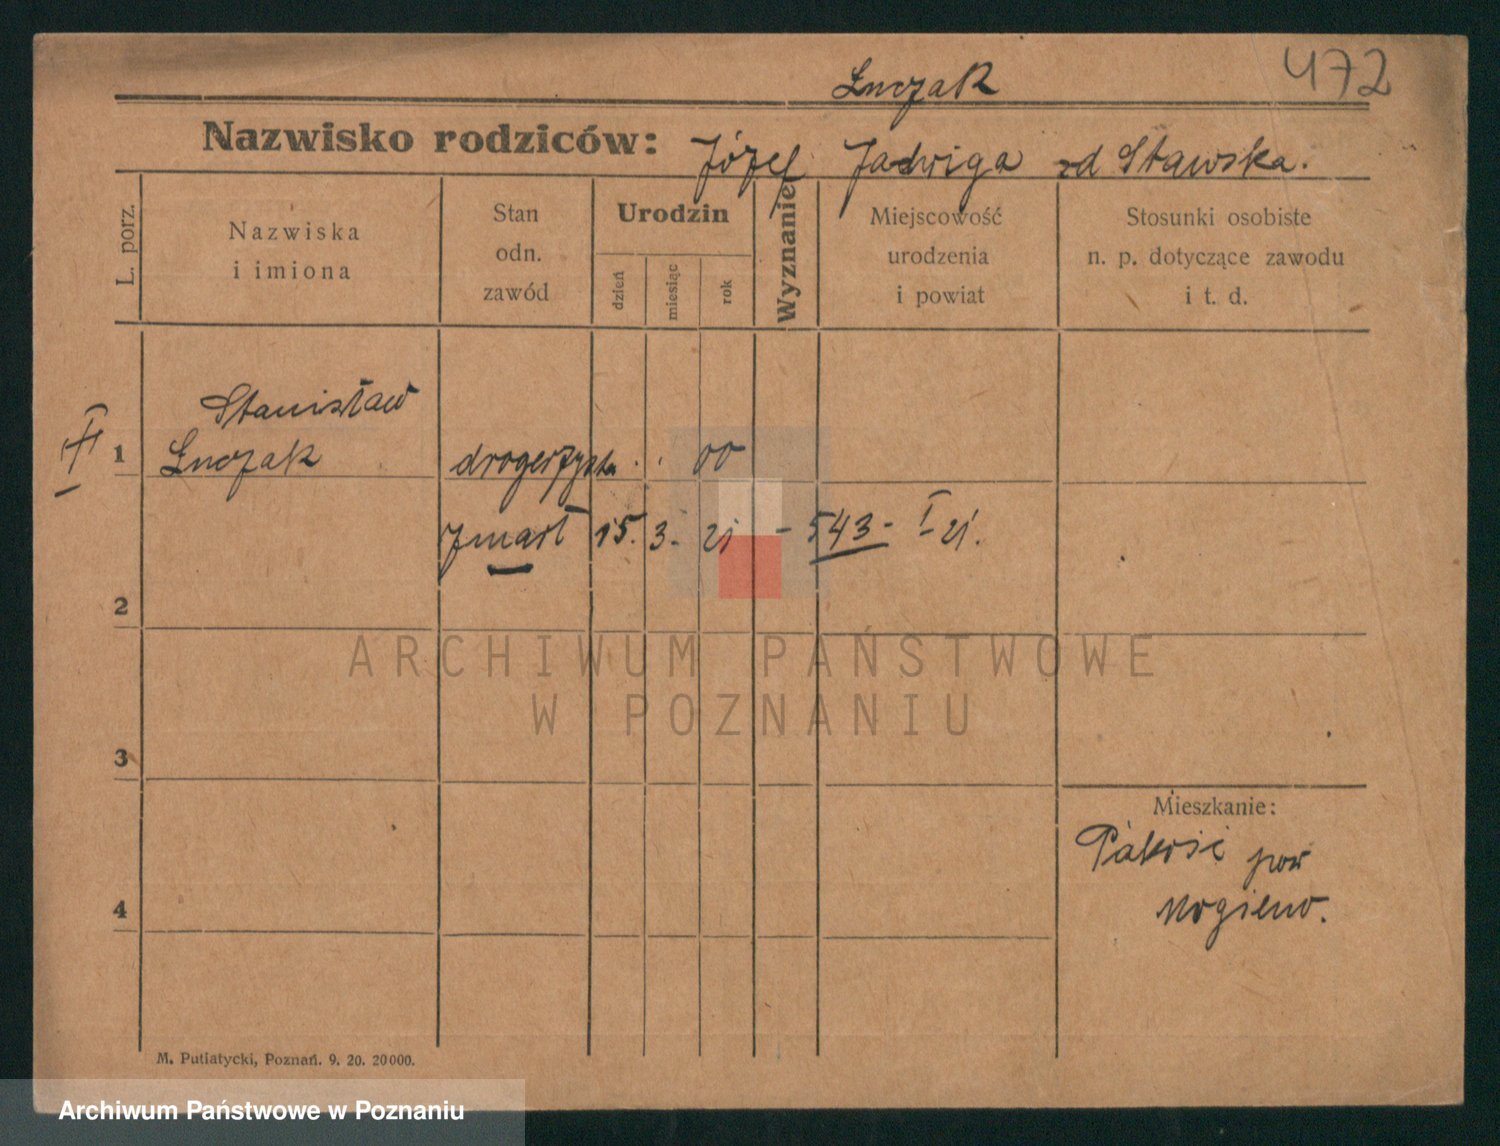 Łuczak 472
Nazwisko rodziców: Józef Jadwiga zd Stawska.
L. porz.
Nazwiska
i imiona
Stan
odn.
zawód
Urodzin
dzień
miesiąc
rok
Wyznanie
Miejscowość
urodzenia
i powiat
Stosunki osobiste
n. p. dotyczące zawodu
i t. d.
Stanisław
1 Łuczak drogerzysta . . 00
zmarł 15. 3. 21 - 543 - I 21.
2
ARCHIWUM PAŃSTWOWE
W POZNANIU
3
Mieszkanie:
Pakość pow
Mogilno.
4
M. Putiatycki, Poznań. 9. 20. 20000.
Archiwum Państwowe w Poznaniu